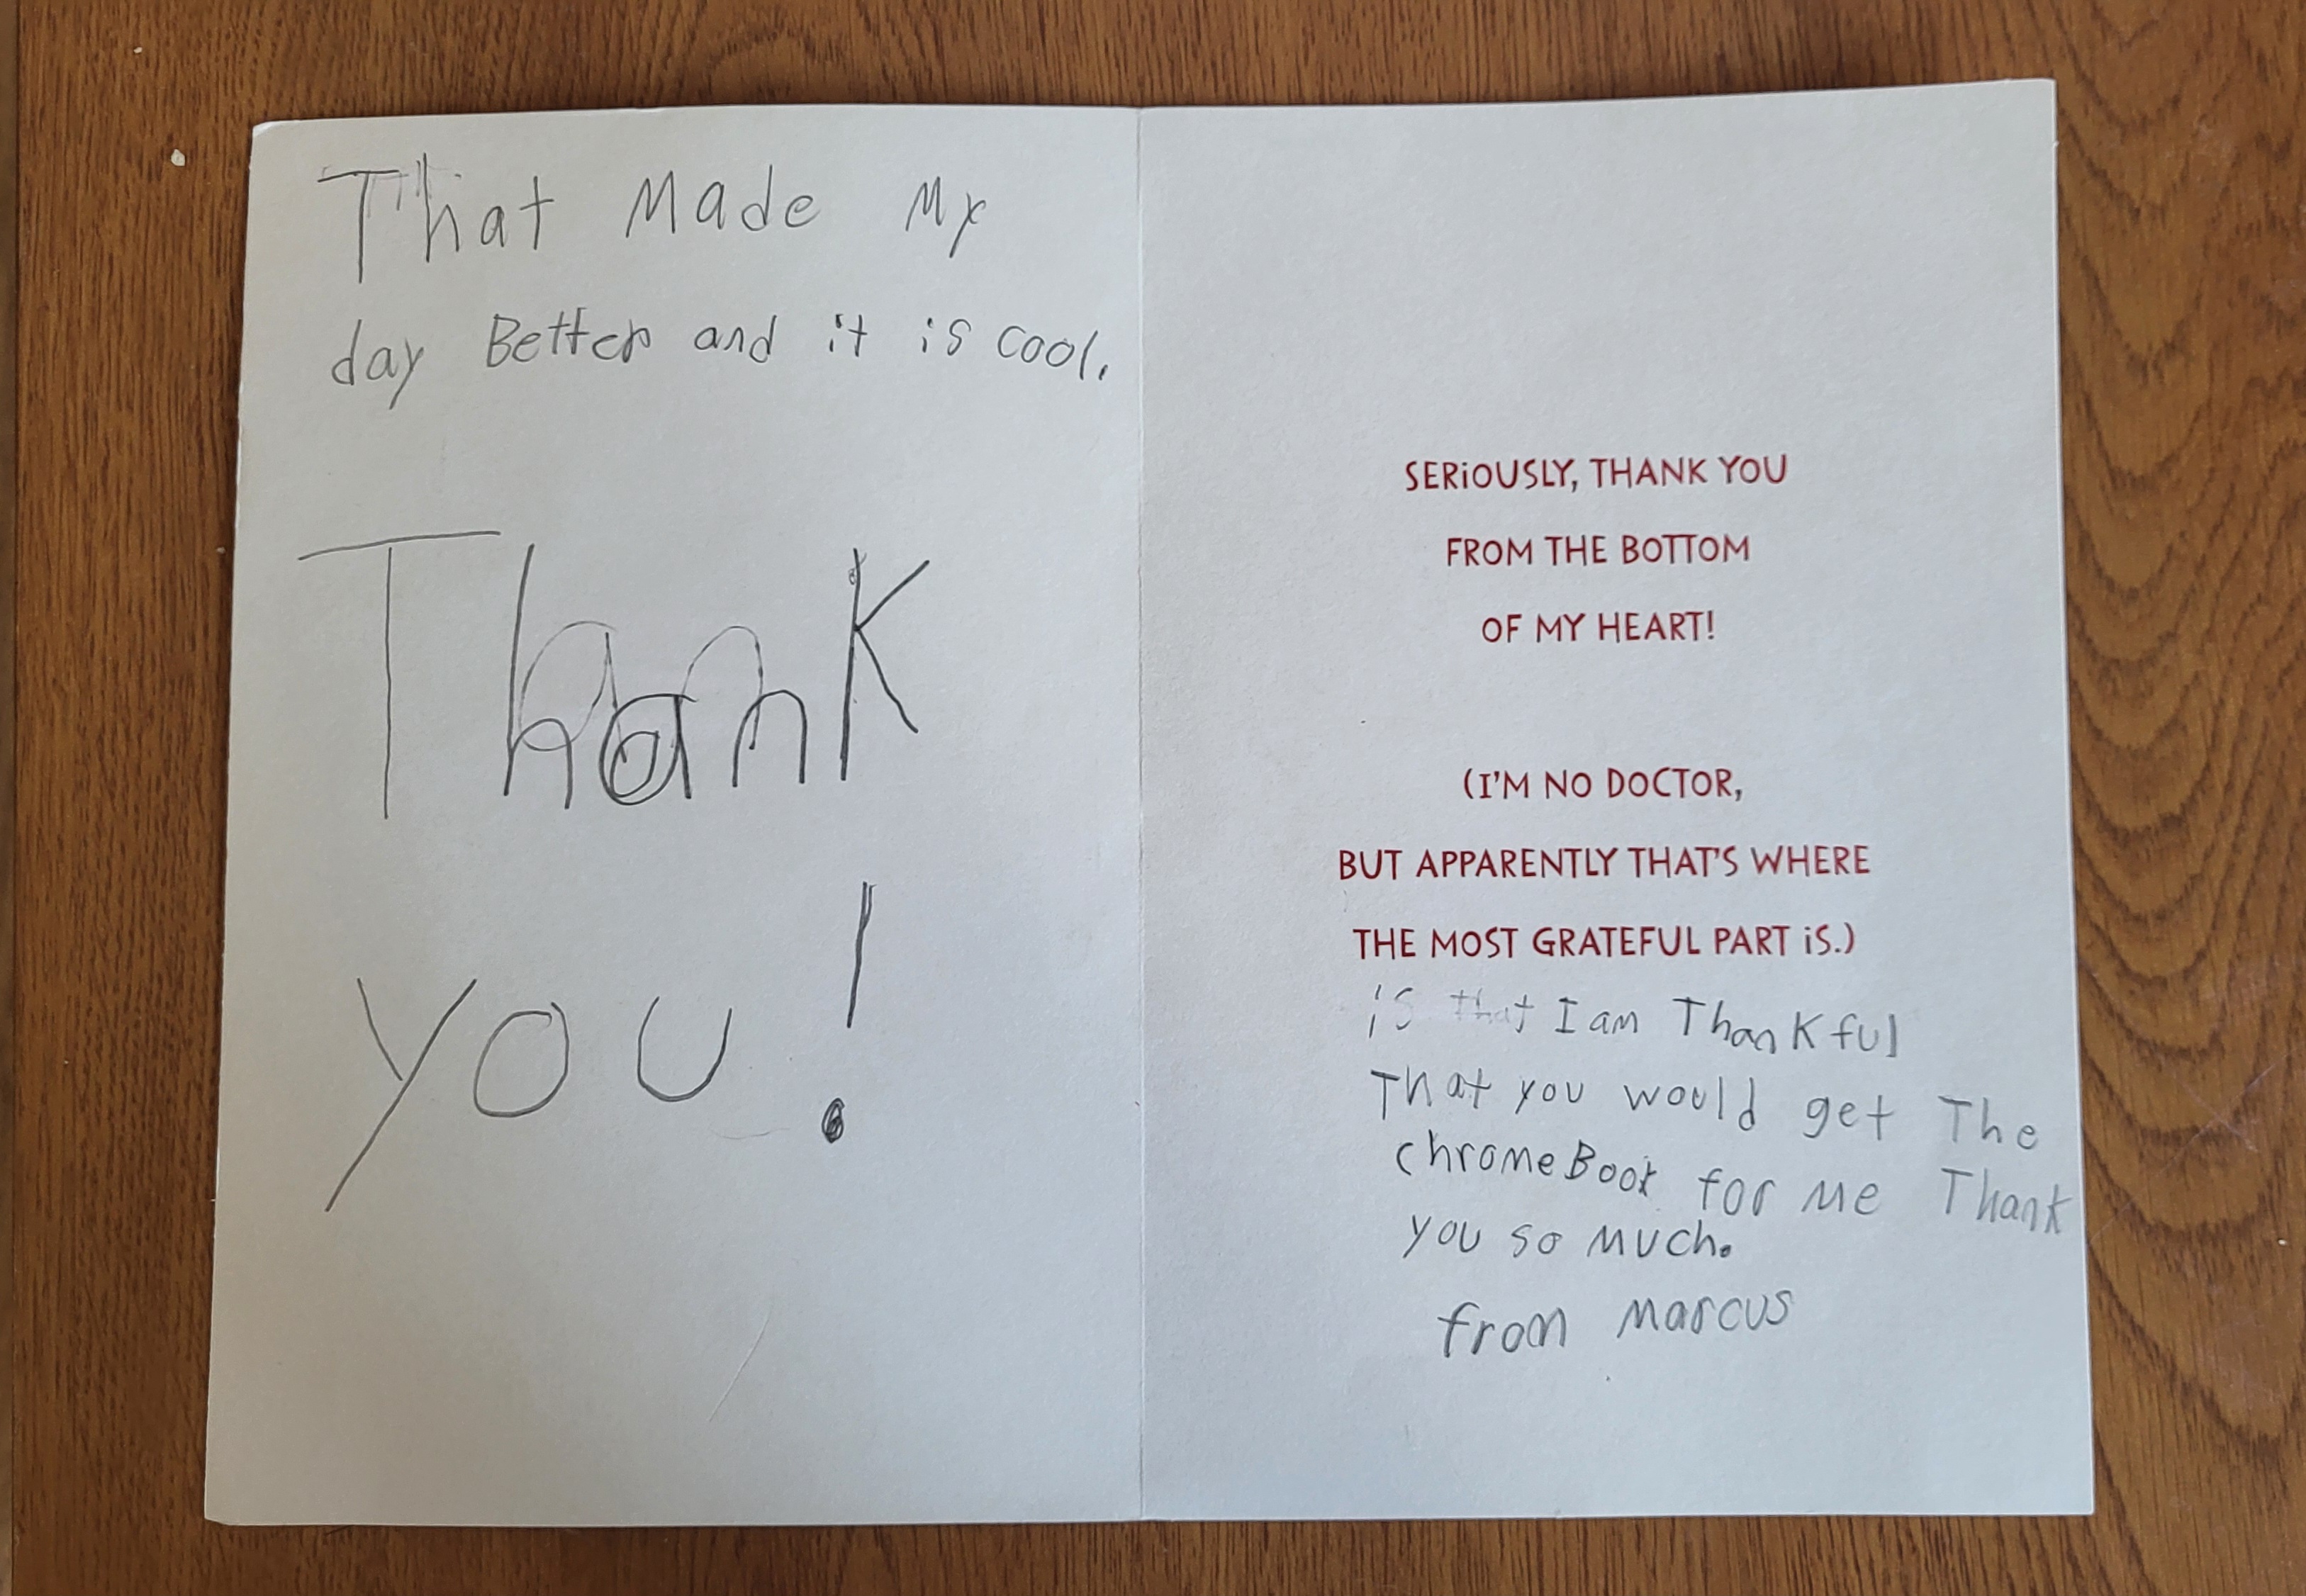 That Made My
day Better and it is cool.
Thank
you!
SERiOUSLY, THANK YOU
FROM THE BOTTOM
OF MY HEART!
(I'M NO DOCTOR,
BUT APPARENTLY THAT'S WHERE
THE MOST GRATEFUL PART iS.)
is that I am Thankful
That you would get The
chromeBook for me Thank
you so much.
from Marcus